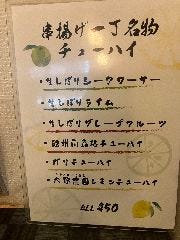 串揚げ一丁名物
チューハイ
・生しぼりシークワーサー
・生しぼりライム
・生しぼりグレープフルーツ
・チューハイ
・ガリチューハイ
・レモンチューハイ
ALL 450